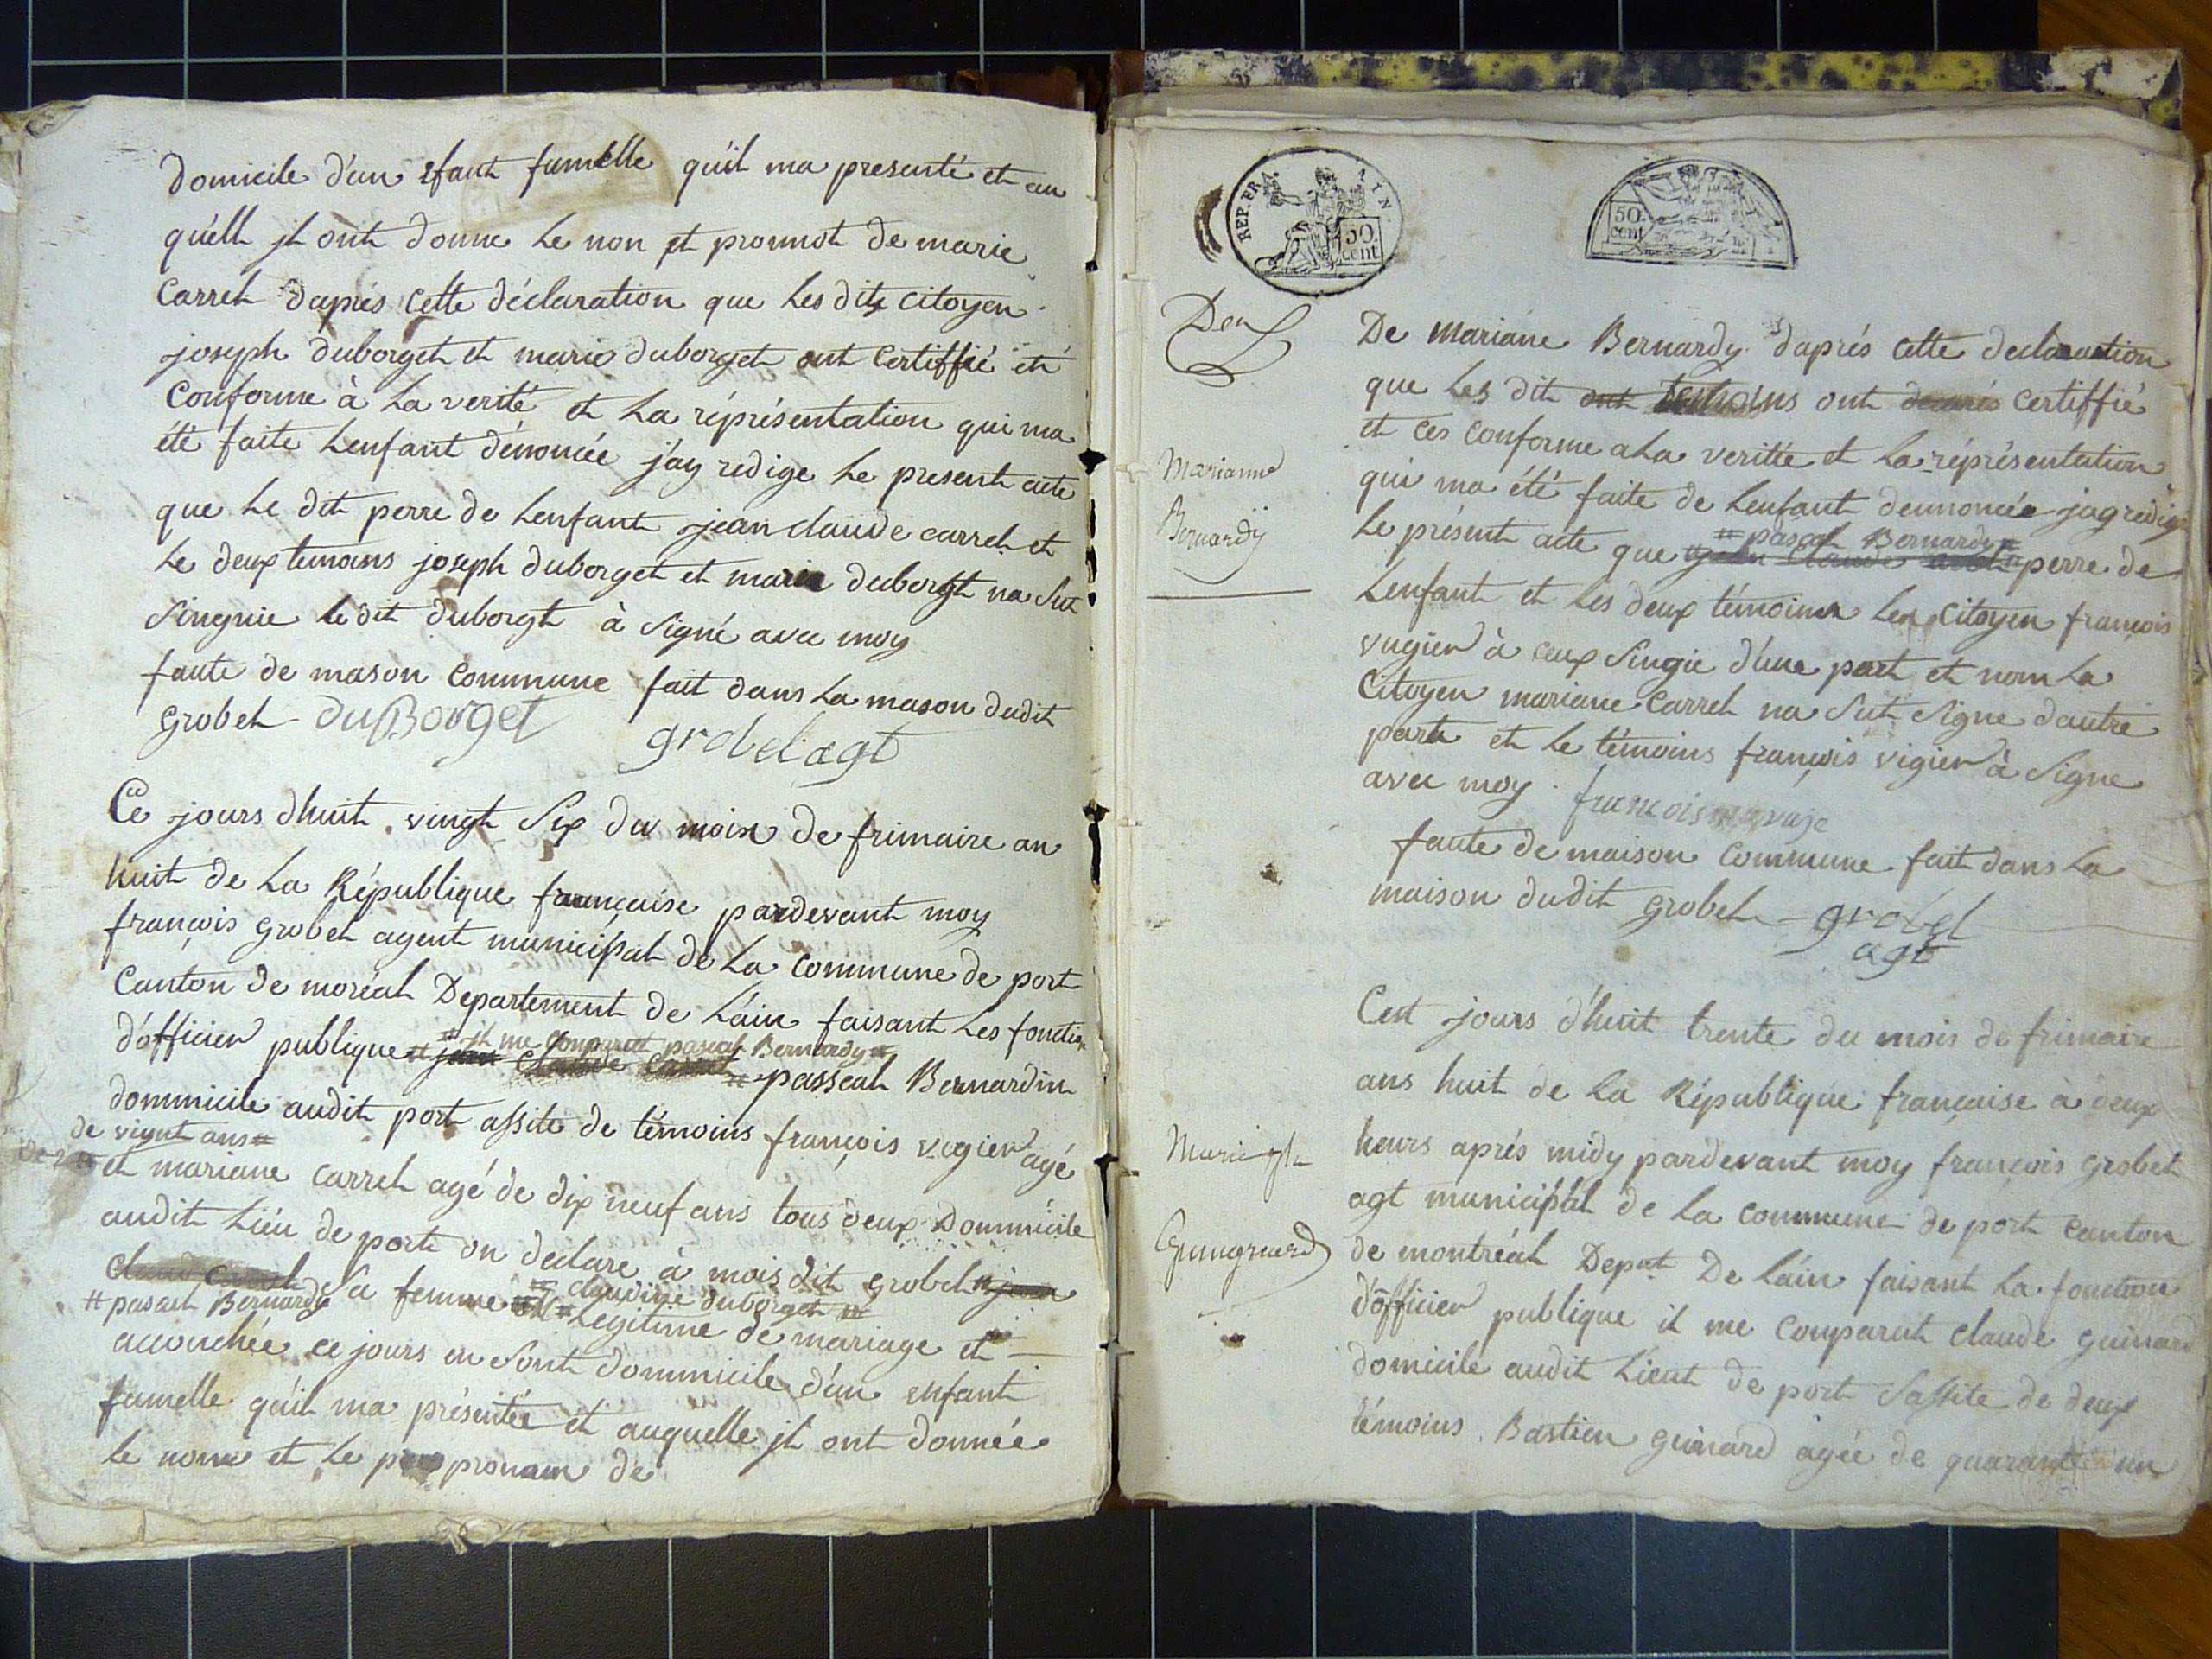 domicile d'un efant fumelle qu'il ma presenté et au
quell jl ont donne le non et pronnot de marie
Carret d'aprés cette déclaration que les dits citoyen
joseph duborget et marie duborget ont certiffié êtê
conforme à la verité et la réprésentation qui ma
été faite lenfant dénoncée j'ay redige le present acte
que le dit perre de lenfant jean claude carret et
le deux temoins joseph duborget et marie duborgt na sut
singnie le dit duborgt à signé avec moy
faute de mason commune fait dans la mason dudit
grobet duBorget
grobel agt
Ce jours dhuit vingt six du moix de frimaire an
huit de la République française pardevant moy
françois grobet agent municipal de la commune de port
Canton de moréal Departement de láin faisant les fonction
# jl me comparut pascal Bernardy #
d'officier publique # jean claude carret # passcal Bernardin
dommicile audit port assite de témoins françois vugier agé
de vignt ans #
et mariane carret agé de dix neuf ans tous deux Dommicile
audit liéu de porte on declare à mois dit grobel # jean
claud carret sa femme # claudine duborget #
# pascal Bernardy legitime de mariage et
accouchée ce jours en sont dommicile d'un enfant
fumelle qúil ma présentée et auquelle jl ont donnée
le nom et le pronam de
REP. FRA.
AIN.
50 cent
50. cent
De mariane Bernardy d'aprés cette declaration
que les dit ont temoins ont certiffié
et ces conforme a la verittée et la réprésentation
qui ma été faite de lenfant dennoncée jag redige
# pascal Bernardy #
le présent acte que jean claude carret perre de
Lenfant et les deux témoins les citoyen françois
vugier à ceux singie d'une part et nom la
Citoyen mariane Carret na sut signe dautre
parte et le témoins françois vigier à signe
avec moy. francois
faute de maison commune fait dans la
maison dudit grobet grobel
agt
Marianne
Bernardÿ
Cest jours d'huit trente du mois de frimaire
ans huit de la République française a deux
heurs aprés midy pardevant moy françois grobet
agt municipal de la commune de port canton
de montréal Depnt De láin faisant la fonction
d'officier publique il me comparut claude guinard
domicile audit lieut de port sassite de deux
témoins. Bastien guinard agée de quarante un
Guingnard